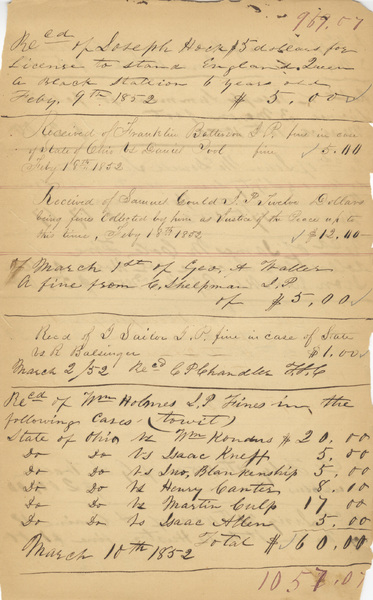 969.07
Recd of Joseph Hock $5 dollars for
License to stand England's Queen
a Black Stallion 6 years old
Feby, 9th 1852 $ 5.00
Received of Franklin J.P. fine in case
of State of Ohio vs Daniel Pool fine $5.00
Feby 18th 1852
Received of Samuel Gould J.P. Twelve Dollars
being fines collected by him as Justice of the Peace up to
this time, Feby 18th 1852 $12.00
of March 1st of Geo, A Waller
A fine from C. Shelpman J.P
of $5.00
Recd of J Sailor J.P. fine in case of State
vs R Balsinger $1.00
March 2/52 Recd C P Chandler
Recd of Wm Holmes J.P Fines in the
following Cases (towit)
State of Ohio Vs Wm $20.00
Do Do Vs Isaac Kneff 5.00
Do Do Vs Jno, Blankenship 5.00
Do Do Vs Henry Canter 8.00
Do Do Vs Martin Culp 17 00
Do Do Vs Isaac Allen 5.00
Total $60.00
March 10th 1852
1057.07